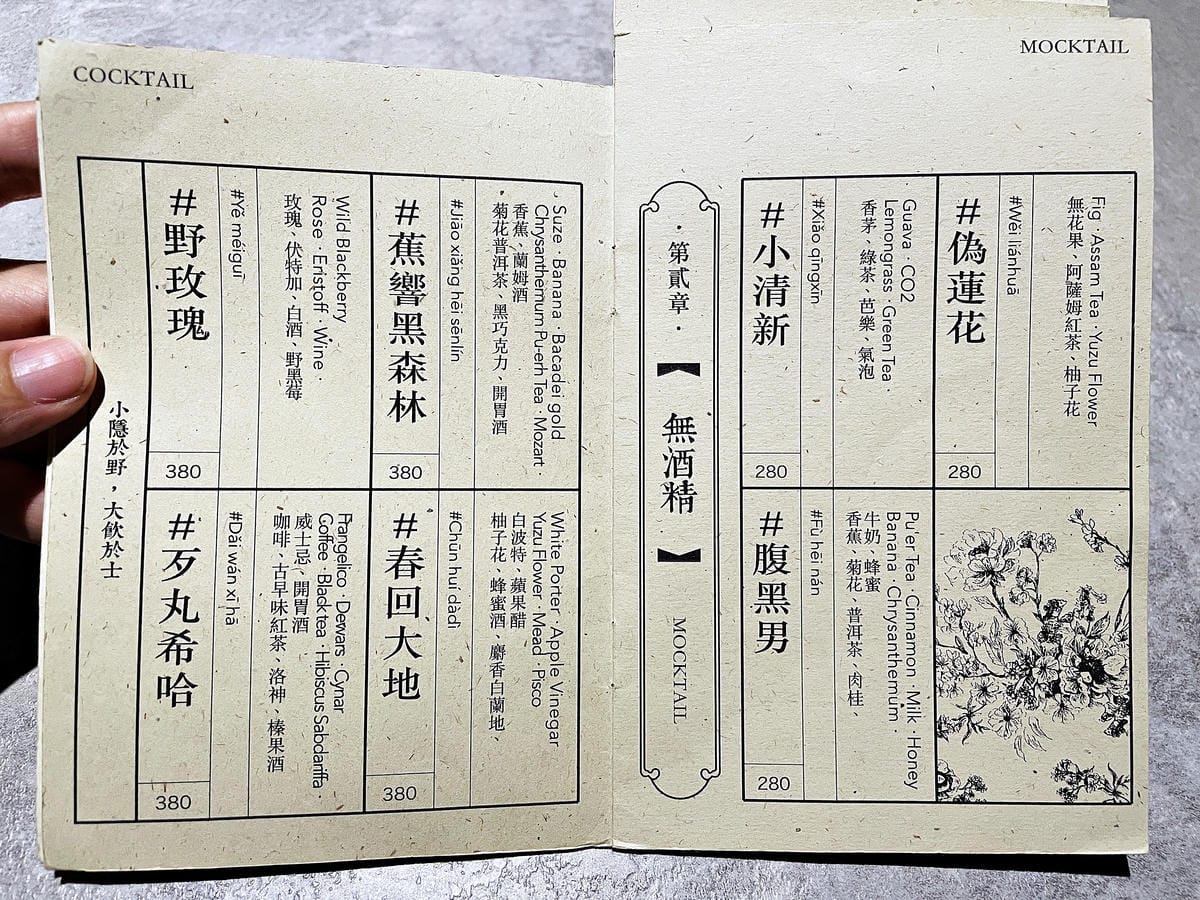 COCKTAIL
#野玫瑰
#Yě méiguī
Wild Blackberry
Rose · Eristoff · Wine ·
玫瑰、伏特加、白酒、野黑莓
380
#蕉響黑森林
#Jiāo xiǎng hēi sēnlín
Suze · Banana · Bacadei gold
Chrysanthemum Pu-erh Tea · Mozart ·
香蕉、蘭姆酒
菊花普洱茶、黑巧克力、開胃酒
380
#歹丸希哈
#Dǎi wán xī hā
Frangelico · Dewars · Cynar
Coffee · Black tea · Hibiscus Sabdariffa ·
威士忌、開胃酒
咖啡、古早味紅茶、洛神、榛果酒
380
#春回大地
#Chūn huí dàdì
White Porter · Apple Vinegar
Yuzu Flower · Mead · Pisco
白波特、蘋果醋
柚子花、蜂蜜酒、麝香白蘭地、
380
小隱於野，大飲於士
MOCKTAIL
·第貳章·
【無酒精】
MOCKTAIL
#小清新
#Xiǎo qīngxīn
Guava · CO2
Lemongrass · Green Tea ·
香茅、綠茶、芭樂、氣泡
280
#偽蓮花
#Wěi liánhuā
Fig · Assam Tea · Yuzu Flower
無花果、阿薩姆紅茶、柚子花
280
#腹黑男
#Fù hēi nán
Pu'er Tea · Cinnamon · Milk · Honey
Banana · Chrysanthemum ·
牛奶、蜂蜜
香蕉、菊花、普洱茶、肉桂、
280